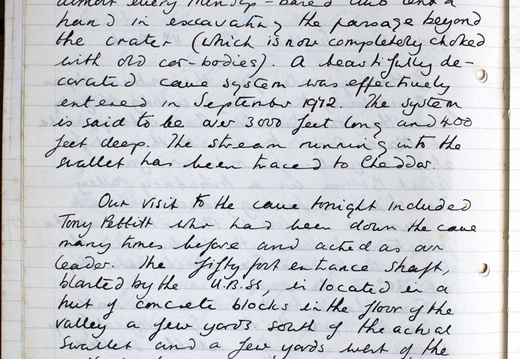 almost every Mendip-based club lent a
hand in excavating the passage beyond
the crater (which is now completely choked
with old car-bodies). A beautifully de-
corated cave system was effectively
entered in September 1972. The system
is said to be over 3000 feet long and 400
feet deep. The stream running into the
swallet has been traced to Cheddar.
Our visit to the cave tonight included
Tony who had been down the cave
many times before and acted as our
leader. The fifty foot entrance shaft,
blasted by the U.B.SS, is located in a
hut of concrete blocks in the floor of the
valley a few yards south of the actual
swallet and a few yards west of the